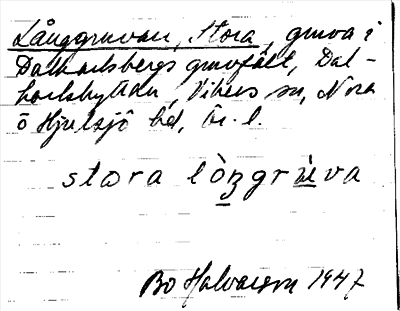 Långgruvan, Stora, gruva i
Dalkarlsbergs gruvfält, Dal-
karlshyttan, Vikers sn, Nora
o Hjulsjö bd, Ör. l.
stora lòŋgrùva
Bo Halvarson 1947